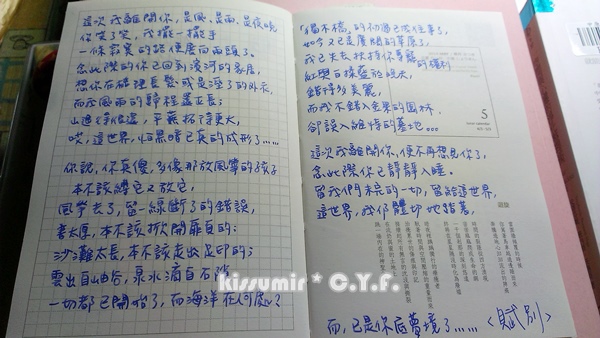 這次我離開你,是風,是雨,是夜晚
你笑了笑,我擺一擺手
一條寂寞的路便展向兩頭了。
念此際的你已回到濱河的家居,
想你在梳理長髮或是溼了的外衣,
而我風雨的歸程還正長;
山退得很遠,平蕪拓得更大,
哎,這世界,怕黑暗已真的成形了……
你說,你真傻,多像那放風箏的孩子
本不該縛它又放它,
風箏去了,留一線斷了的錯誤,
書太厚,本不該掀開扉頁的;
沙灘太長,本不該走出足印的;
雲出自山谷,泉水滴自石隙
一切都已開始了,而海洋在何處?
「獨木橋」的初遇已成往事了,
如今又已是廣闊的草原了,
我已失去扶持你專寵的權利
紅與白揉藍於晚天,
錯得多美麗,
而我不錯入金果的園林,
卻誤入維特的墓地…
這次我離開你,便不再想見你了,
念此際你已靜靜入睡。
留我們未完的一切,留給這世界,
這世界,我仍體切地踏著,
而,已是你底夢境了……〈賦別〉
5
kissumir * C.Y.F.